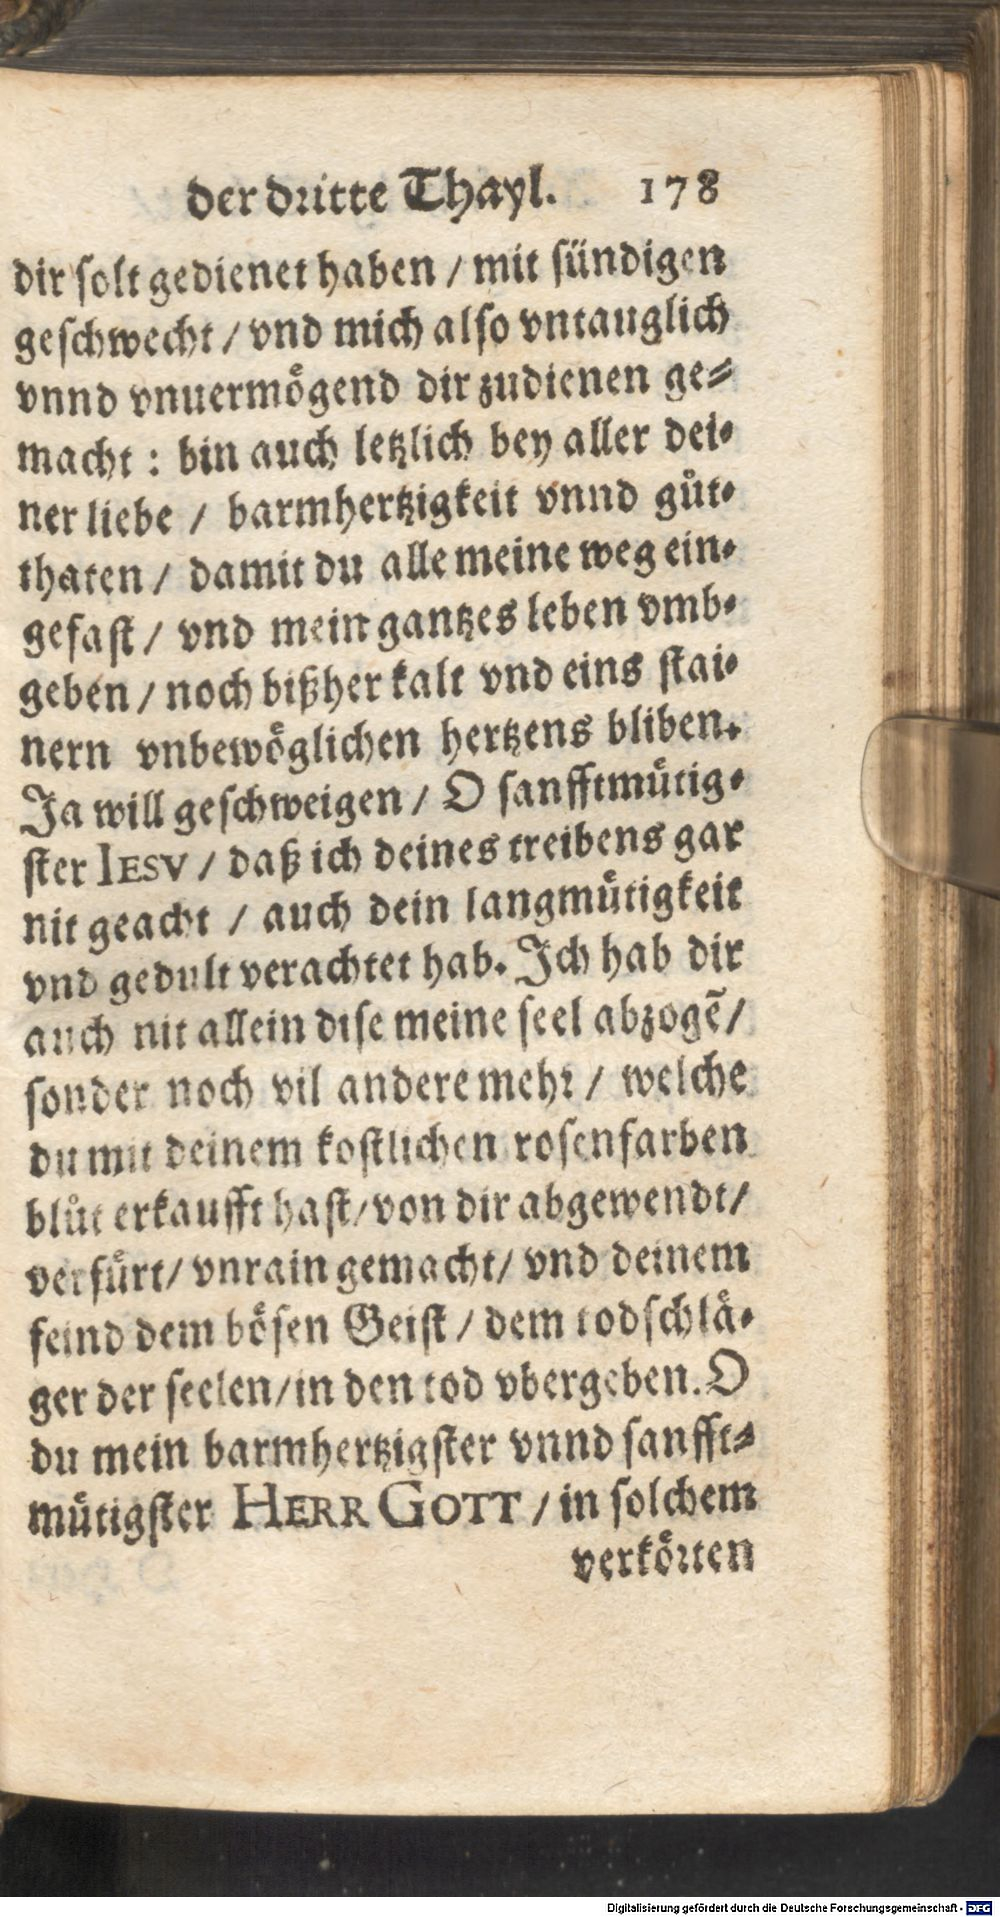 der dritte Thayl. 178
dir solt gedienet haben / mit sündigen
geschwecht / vnd mich also vntauglich
vnnd vnuermögend dir zudienen ge⸗
macht : bin auch letzlich bey aller dei⸗
ner liebe / barmhertzigkeit vnnd gůt⸗
thaten / damit du alle meine weg ein⸗
gefast / vnd mein gantzes leben vmb⸗
geben / noch bißher kalt vnd eins stai⸗
nern vnbewöglichen hertzens bliben.
Ja will geschweigen / O sanfftmütig⸗
ster IESV / daß ich deines treibens gar
nit geacht / auch dein langmütigkeit
vnd gedult verachtet hab. Ich hab dir
auch nit allein dise meine seel abzogẽ /
sonder noch vil andere mehr / welche
du mit deinem kostlichen rosenfarben
blůt erkaufft hast / von dir abgewendt /
verfürt / vnrain gemacht / vnd deinem
feind dem bösen Geist / dem todschlä⸗
ger der seelen / in den tod vbergeben. O
du mein barmhertzigster vnnd sanfft⸗
mütigster HERR GOTT / in solchem
verkörten
Digitalisierung gefördert durch die Deutsche Forschungsgemeinschaft - DFG